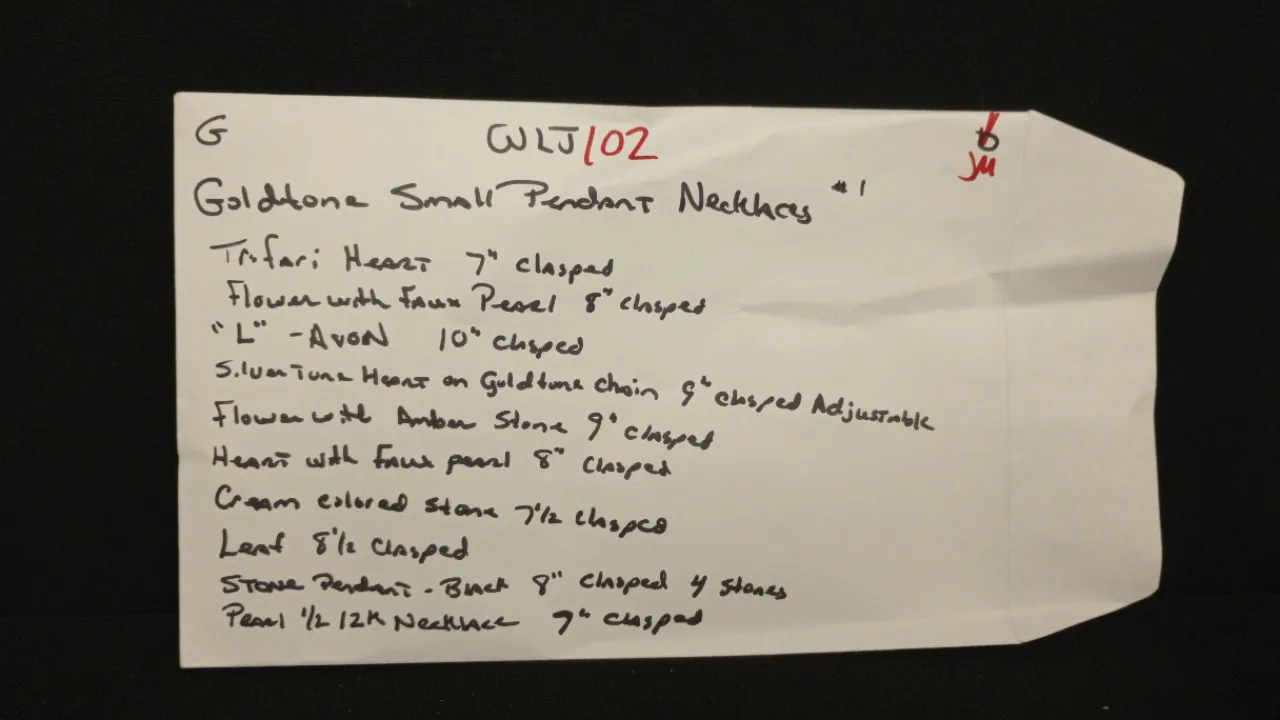 G WLJ/02
JM
Goldtone Small Pendant Necklaces #1
Trifari Heart 7" clasped
Flower with Faux Pearl 8" clasped
"L" - Avon 10" clasped
Silvertone Heart on Goldtone Chain 9" clasped Adjustable
Flower with Amber Stone 9" clasped
Heart with Faux pearl 8" clasped
Cream colored stone 7 1/2 clasped
Leaf 8 1/2 clasped
Stone Pendant - Black 8" clasped 4 stones
Pearl 1/2 12K Necklace 9" clasped